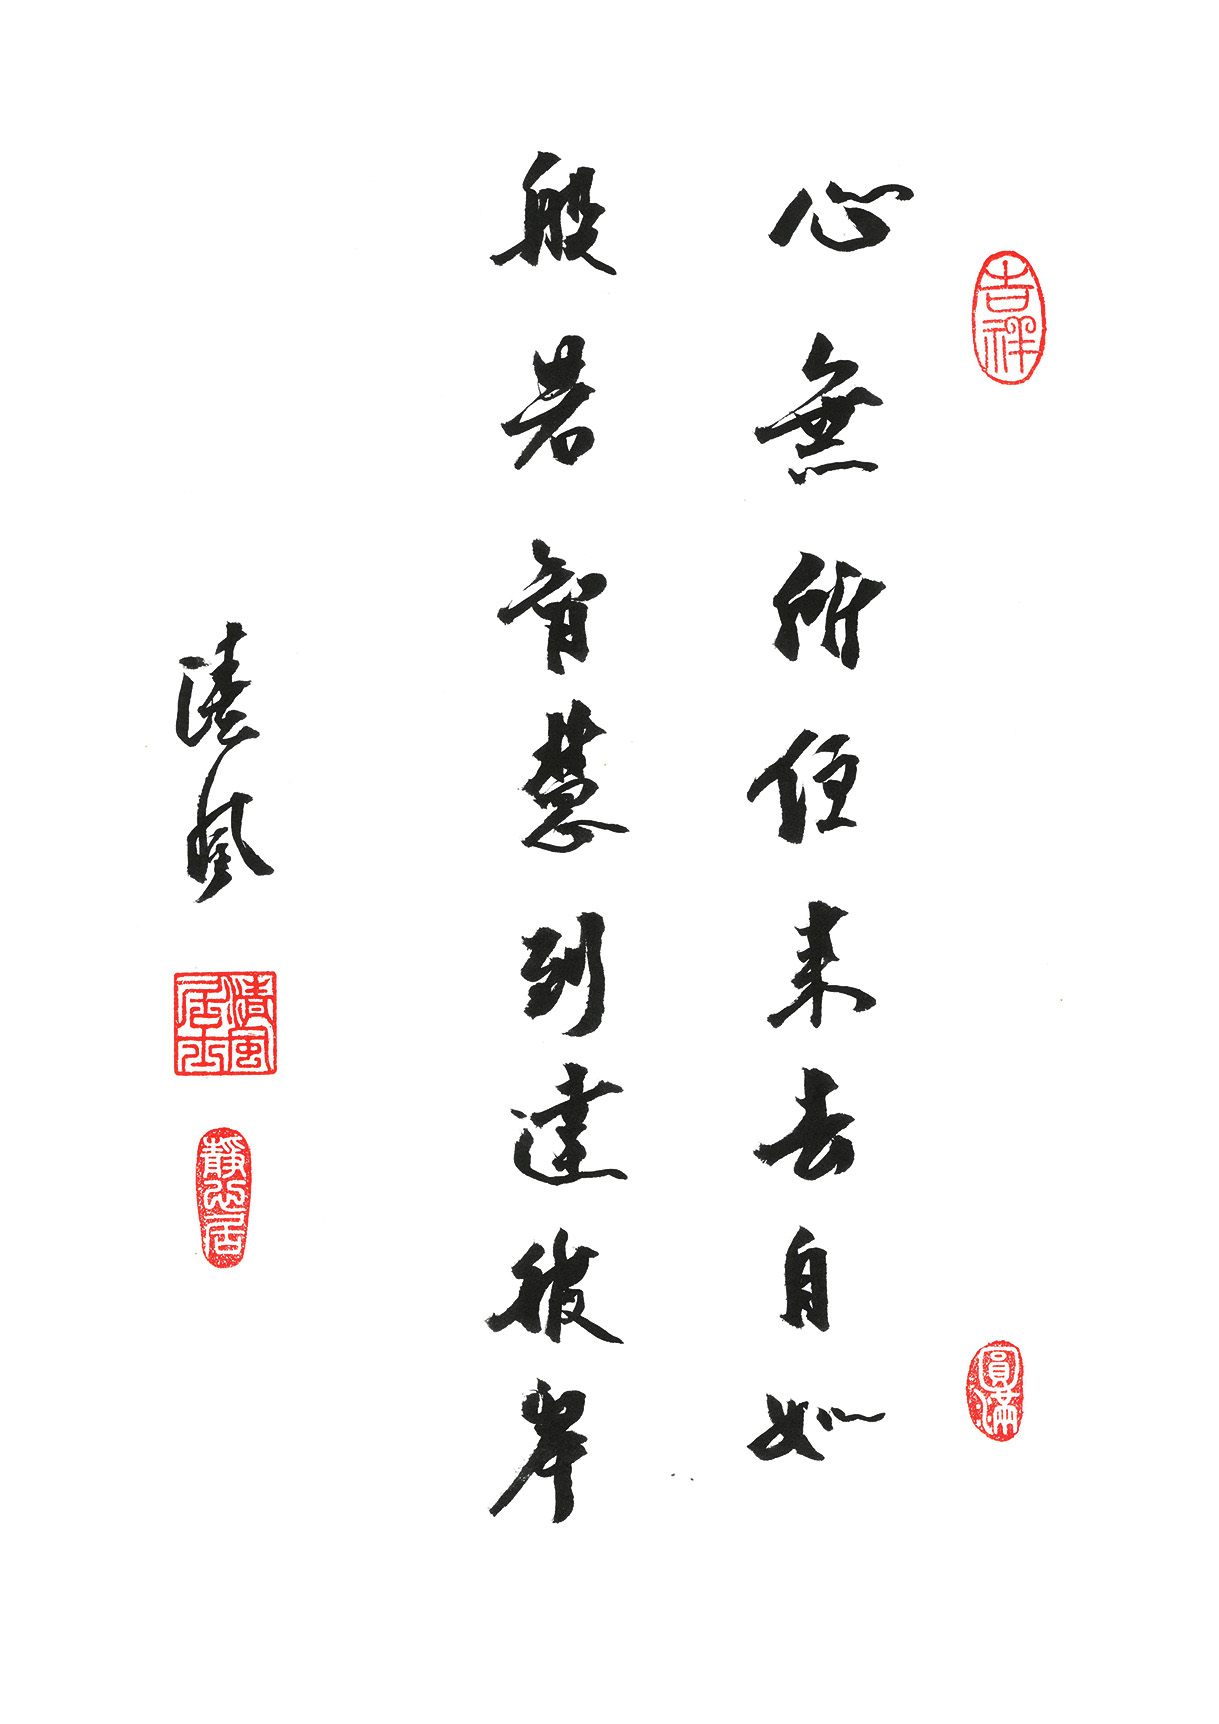 吉祥
心無所住来去自如
圓滿
般若智慧到達彼岸
清風
清風居士
靜心居